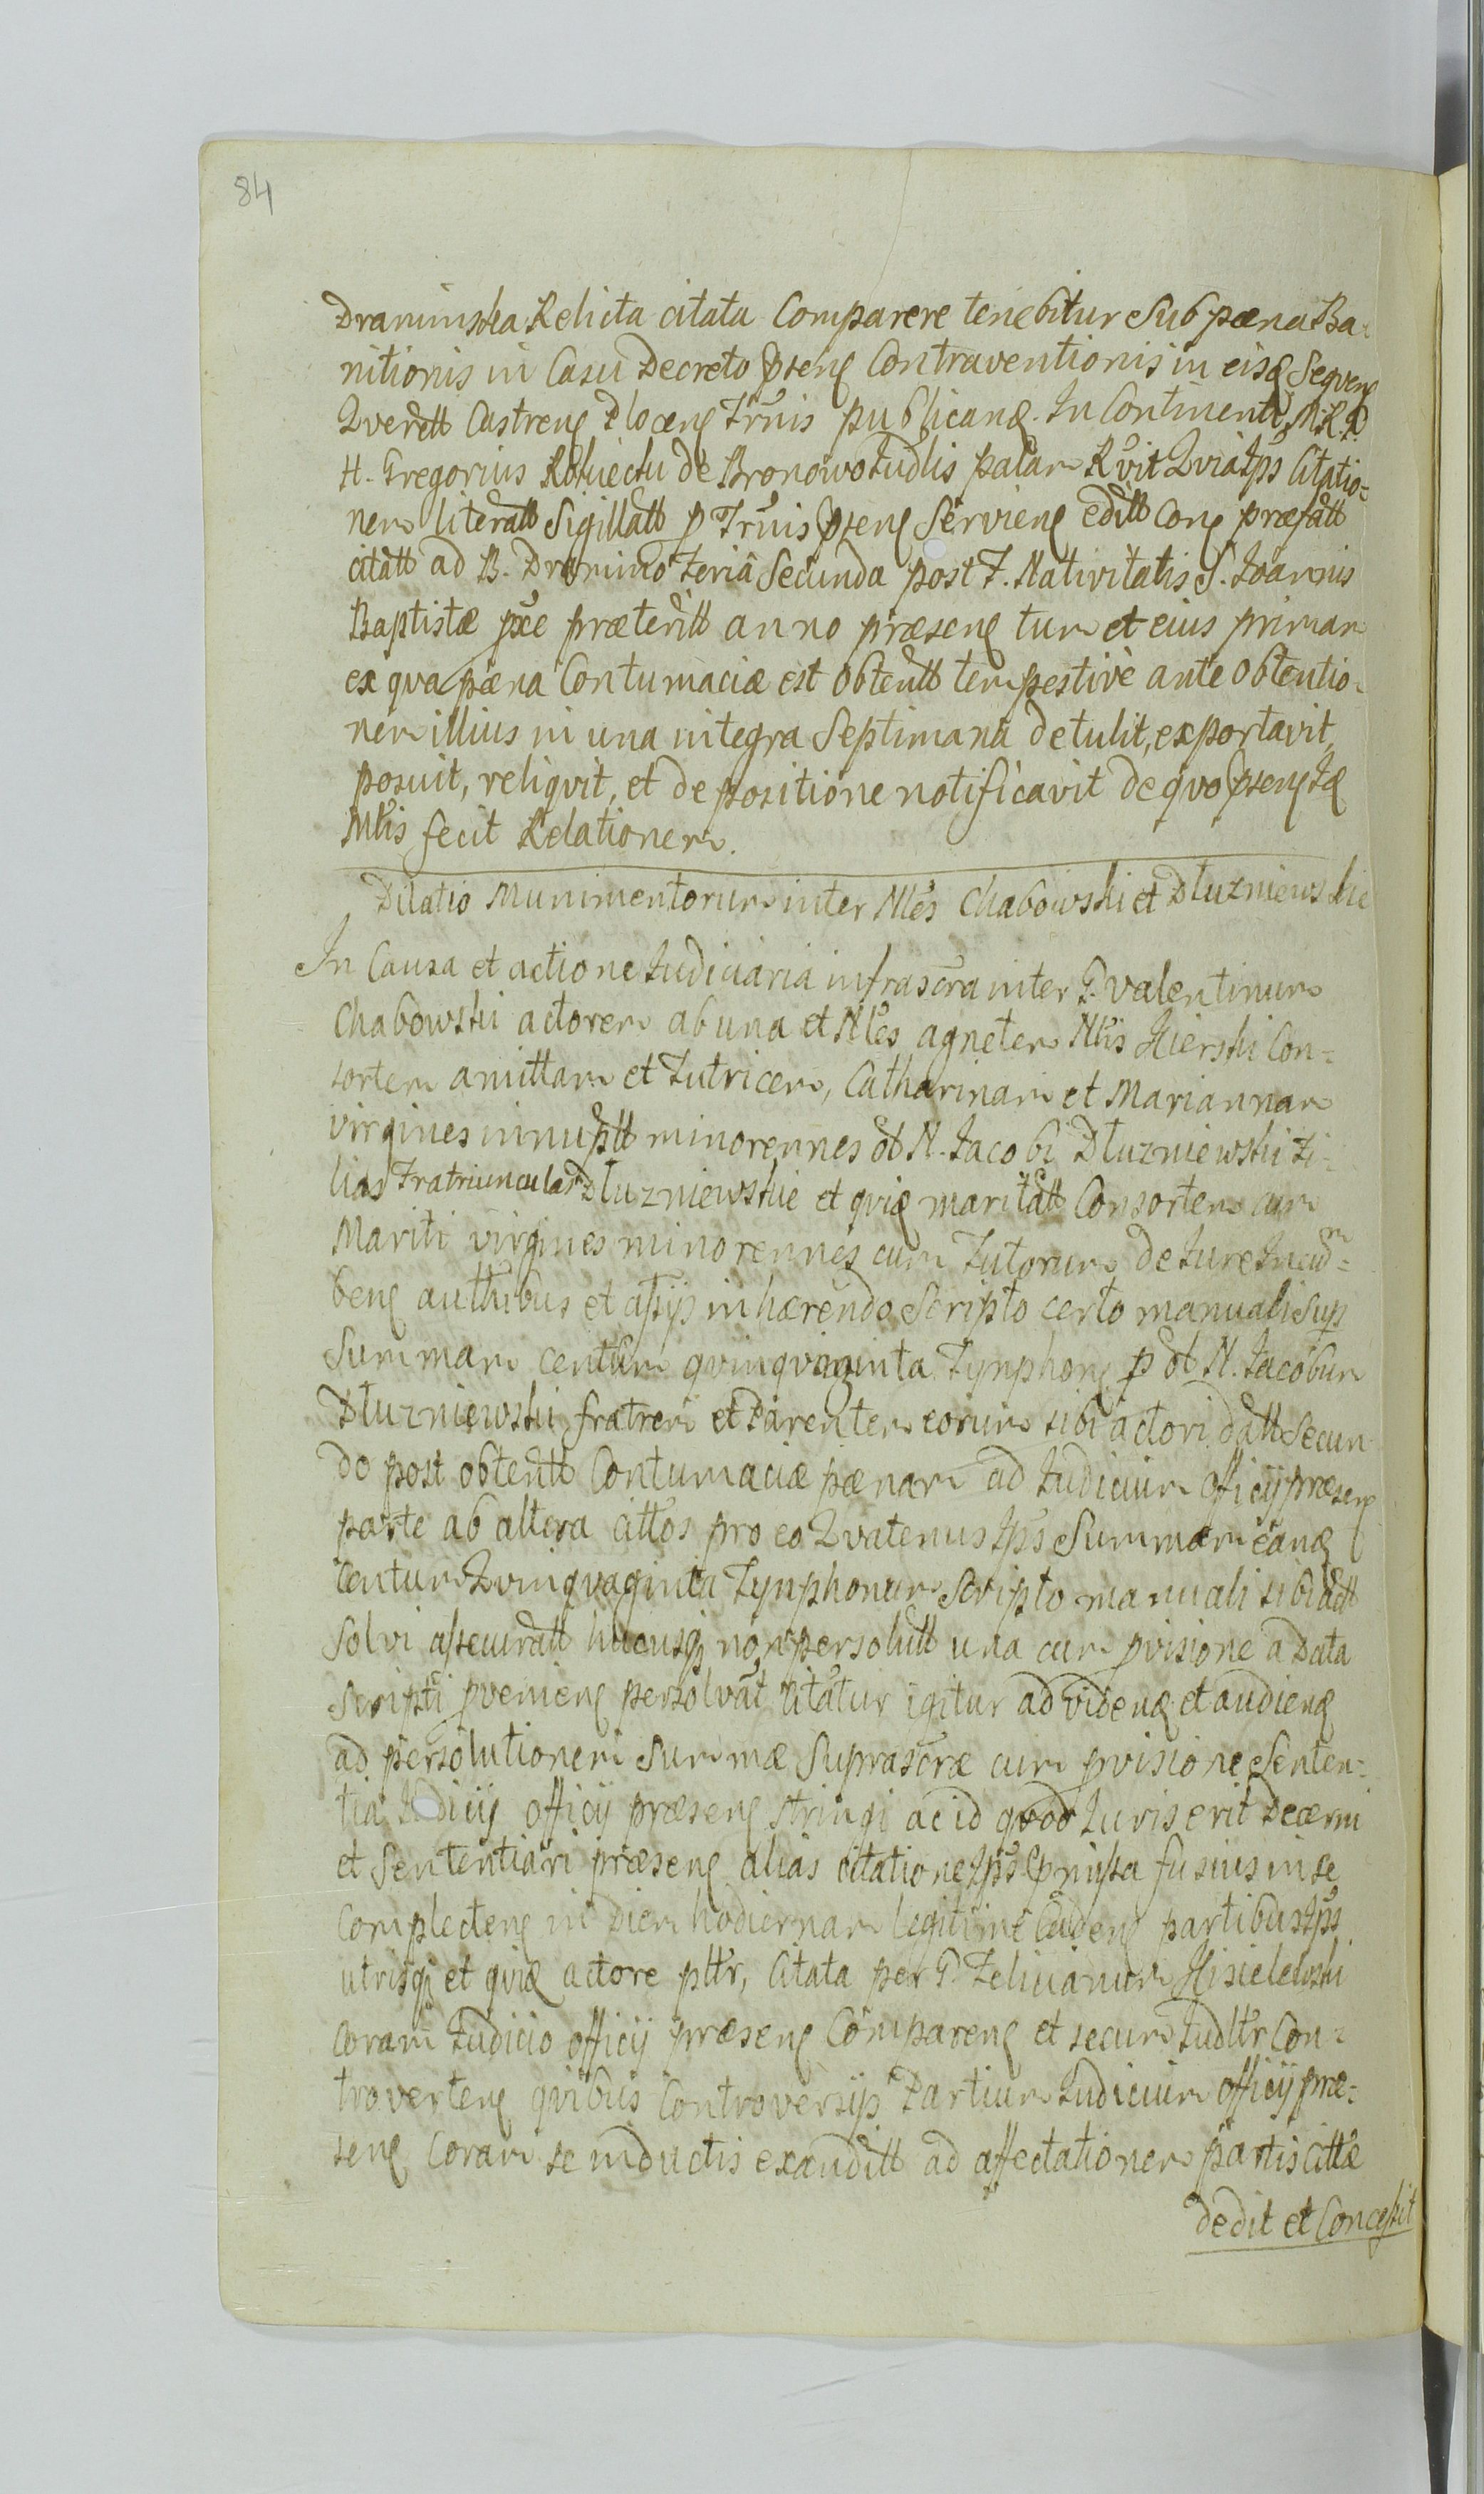 84
Draminska Relicta citata Comparere tenebitur Sub pæna Ba-
nitionis in Casu Decreto Psenꝭ Contraventionis in eisꝗ Sequenꝭ
Qverellꝭ Castrenꝭ Plocenꝭ Trnis publicanꝗ. In Continenti M.R.P.
H. Gregorius de Bronowo Judlis palam Rvit Qvia Ips Citatio=
nem literatt Sigillatt p Trnis Psenꝭ Servienꝭ editt Conꝭ præfatt
citatt ad B. Dramino feria Secunda post F. Nativitatis S. Joannis
Baptistæ pxe præteritt anno præsenꝭ tum et eius primam
ex qva pæna Contumaciæ est obtentt tempestive ante obtentio-
nem illius in una integra Septimana detulit, exportavit,
posuit, reliqvit, et de positione notificavit de qvo psenꝭ Iꝗ
Mtis fecit Relationem.
Dilatio Munimentorum inter Nles Chabowski et Dłuzniewskie
In Causa et actione Judiciaria infrascra inter G. Valentinum
Chabowski actorem ab una et Nles agnetem Nlis Kierski Con=
sortem amittam et Tutricem, Catharinam et Mariannam
virgines innuptt minorennes ol N. Jacobi Dłuzniewski fi-
lias Fratriunculas Dłuzniewskie et qviꝗ maritatt Consortem cum
Mariti virgines minorennes cum Tutorum de Jure Incum=
benꝭ authibus et assijs inhærendo Scripto certo manuali sup
Summam centum qvinqvaginta Tynphonꝭ p ol N. Jacobum
Dłuzniewski fratrem et Parentem eorum sibi actori datt Secun-
do post obtentt Contumaciæ pænam ad Judicium officij præsenꝭ
parte ab altera cittos pro eo Qvatenus Ips Summam eanꝗ
Centum Qvinqvaginta Tynphonum Scripto manuali sibi datt
Solvi assecuratt hucusqꝫ non persolutt una cum pvisione a Data
Scripti pvenienꝭ persolvat citatur igitur ad videnꝗ et audienꝗ
ad persolutionem Summæ Suprascræ cum pvisione Senten=
tia Judicij officij præsenꝭ stringi ac id qvod Juris erit Decerni
et Sententiari præsenꝭ alias citatione Ips pmissa fusius in se
Complectenꝭ in Diem hodiernam legitime Cadenꝭ partibus Ips
utrisqꝫ et qviꝗ actore pltr, Citata per G. Felicianum Kisielewski
Coram Judicio officij præsenꝭ Comparenꝭ et secum Judltr Con=
trovertenꝭ qvibus Controversijs Partium Judicium officij præ=
senꝭ Coram se inductis exauditt ad affectationem partis Cittæ
dedit et Concessit